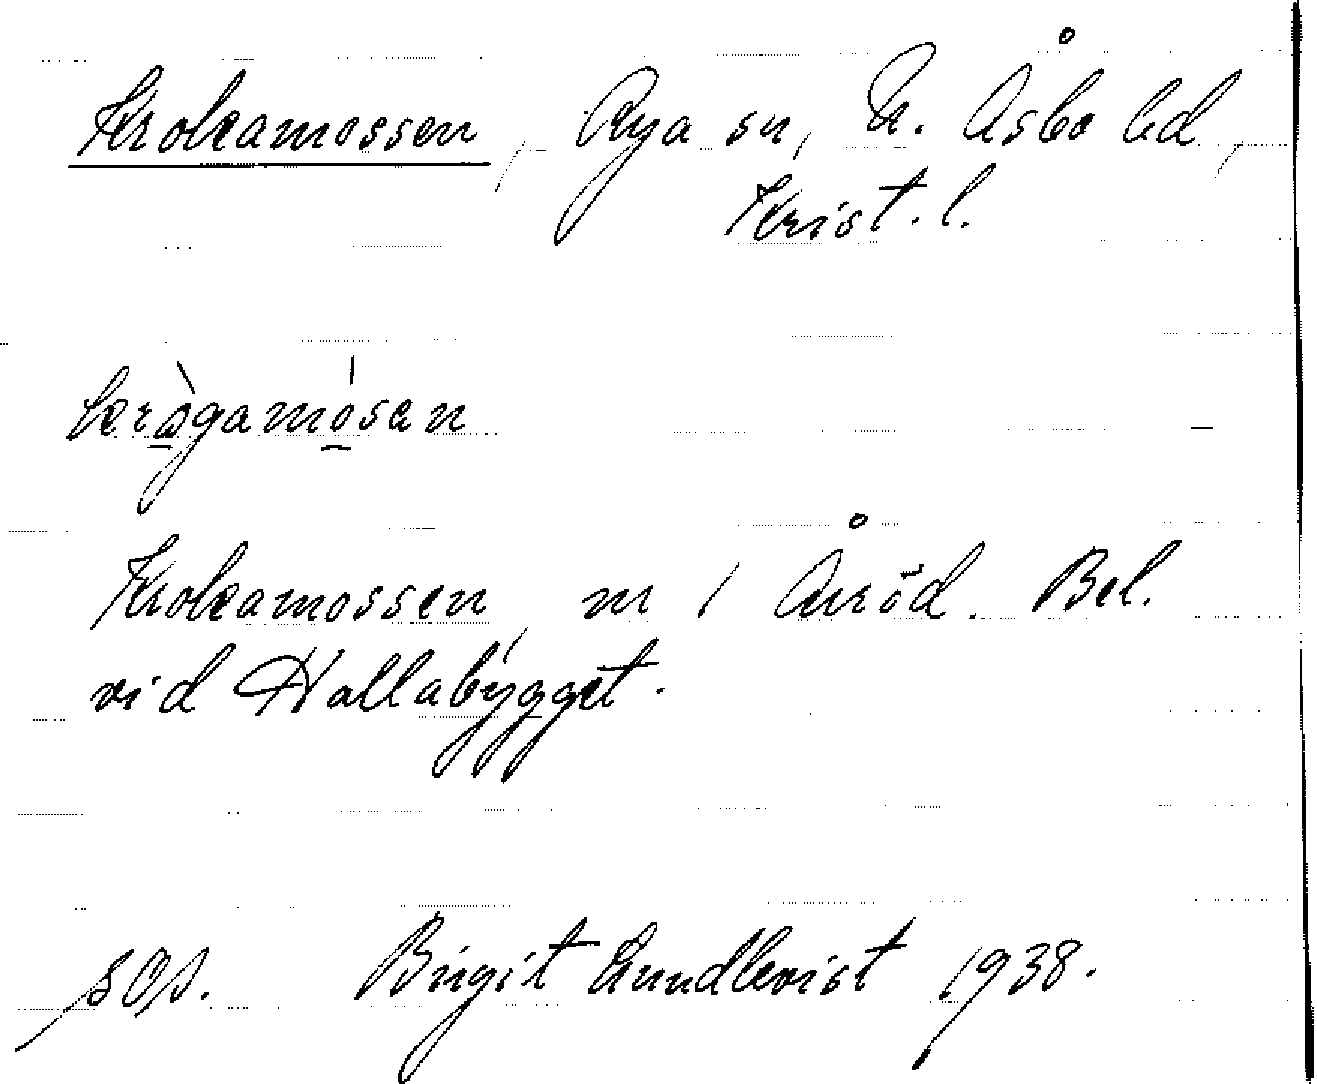 Krokamossen, Rya sn, N. Åsbo hd,
Krist. l.
krågamosen
Krokamossen, nr 1 Åröd. Bel.
vid Hallabygget.
sOs. Birgit Lundkvist 1938.